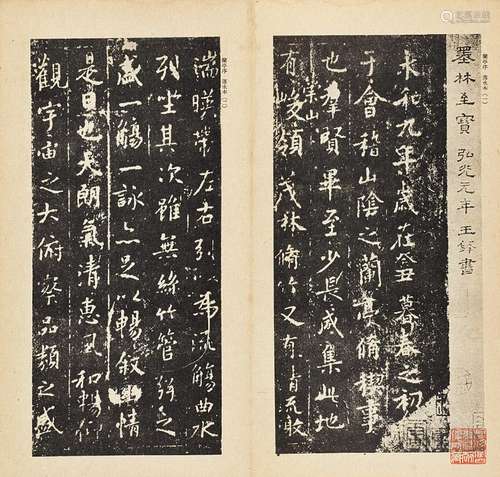 蘭亭序 落水本
墨林至寶 弘光元年王鐸書
永和九年歲在癸丑暮春之初
于會稽山陰之蘭亭脩禊事
也羣賢畢至少長咸集此地
有崇山峻領茂林脩竹又有清流激
蘭亭序 落水本
湍暎帶左右引以為流觴曲水
列坐其次雖無絲竹管弦之
盛一觴一詠亦足以暢敘幽情
是日也天朗氣清惠風和暢仰
觀宇宙之大俯察品類之盛